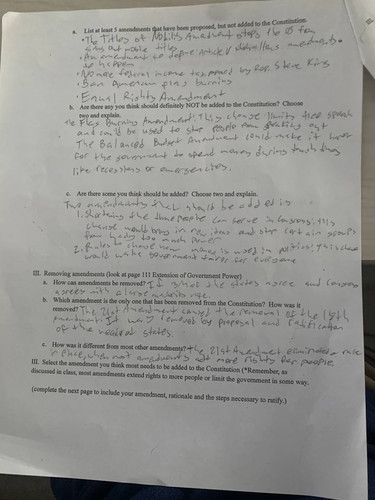 a. List at least 5 amendments that have been proposed, but not added to the Constitution.
• The Titles of Nobility Amendment stops the US from
giving out noble titles
• An amendment to define Article V conventions amendments
to happen
• No more federal income tax proposed by Rep. Steve King
• Ban American flag burning
• Equal Rights Amendment
b. Are there any you think should definitely NOT be added to the Constitution? Choose
two and explain.
The Flag Burning Amendment: This change limits free speech
and could be used to stop people from speaking out
The Balanced Budget Amendment could make it harder
for the government to spend money during tough times
like recessions or emergencies.
c. Are there some you think should be added? Choose two and explain.
Two amendments that should be added is
1. Shortening the time people can serve in Congress: this
change would bring in new ideas and stop certain groups
from having too much power
2. Rules to change how money is used in politics: This change
would make government fairer for everyone
III. Removing amendments (look at page 111 Extension of Government Power)
a. How can amendments be removed? If of the states agree and Congress
agrees with a large majority vote.
b. Which amendment is the only one that has been removed from the Constitution? How was it
removed? The 21st Amendment caused the removal of the 18th
Amendment. It was removed by proposal and ratification
of the needed states.
c. How was it different from most other amendments? The 21st Amendment eliminated a rule
in place, when most amendments add more rights for people
III. Select the amendment you think most needs to be added to the Constitution (*Remember, as
discussed in class, most amendments extend rights to more people or limit the government in some way.
(complete the next page to include your amendment, rationale and the steps necessary to ratify.)